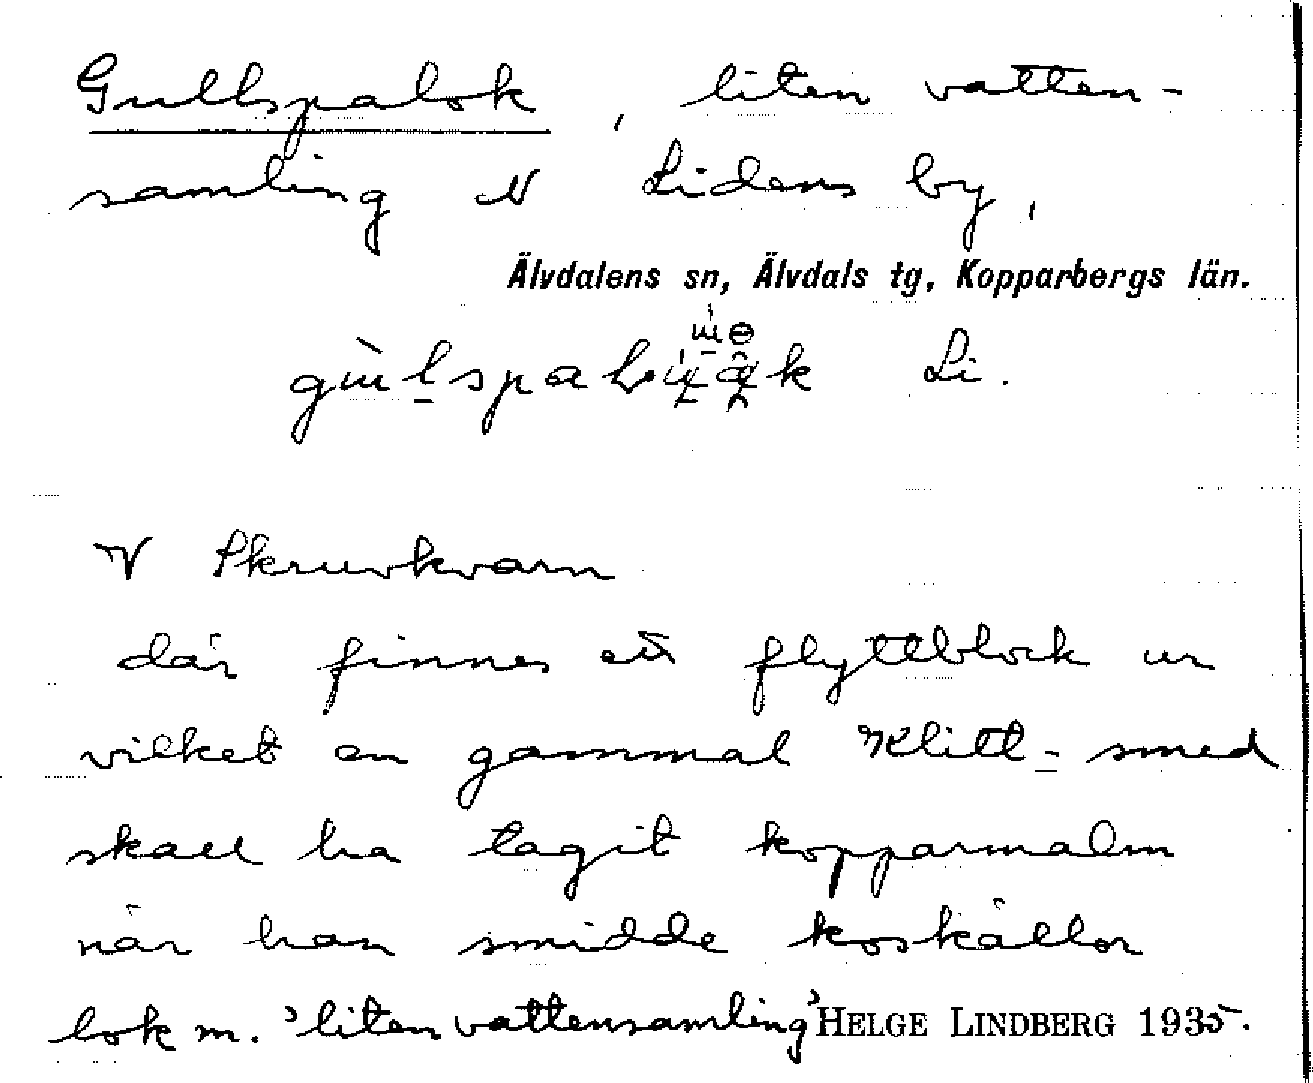 Gullspalok, liten vatten-
samling N Lidens by,
Älvdalens sn, Älvdals tg, Kopparbergs län.
Li.
V Skruvkvarn
där finnes ett flyttblock ur
vilket en gammal Klitt-smed
skall ha tagit kopparmalm
när han smidde koskällor
lok m. 'liten vattensamling' HELGE LINDBERG 1935.